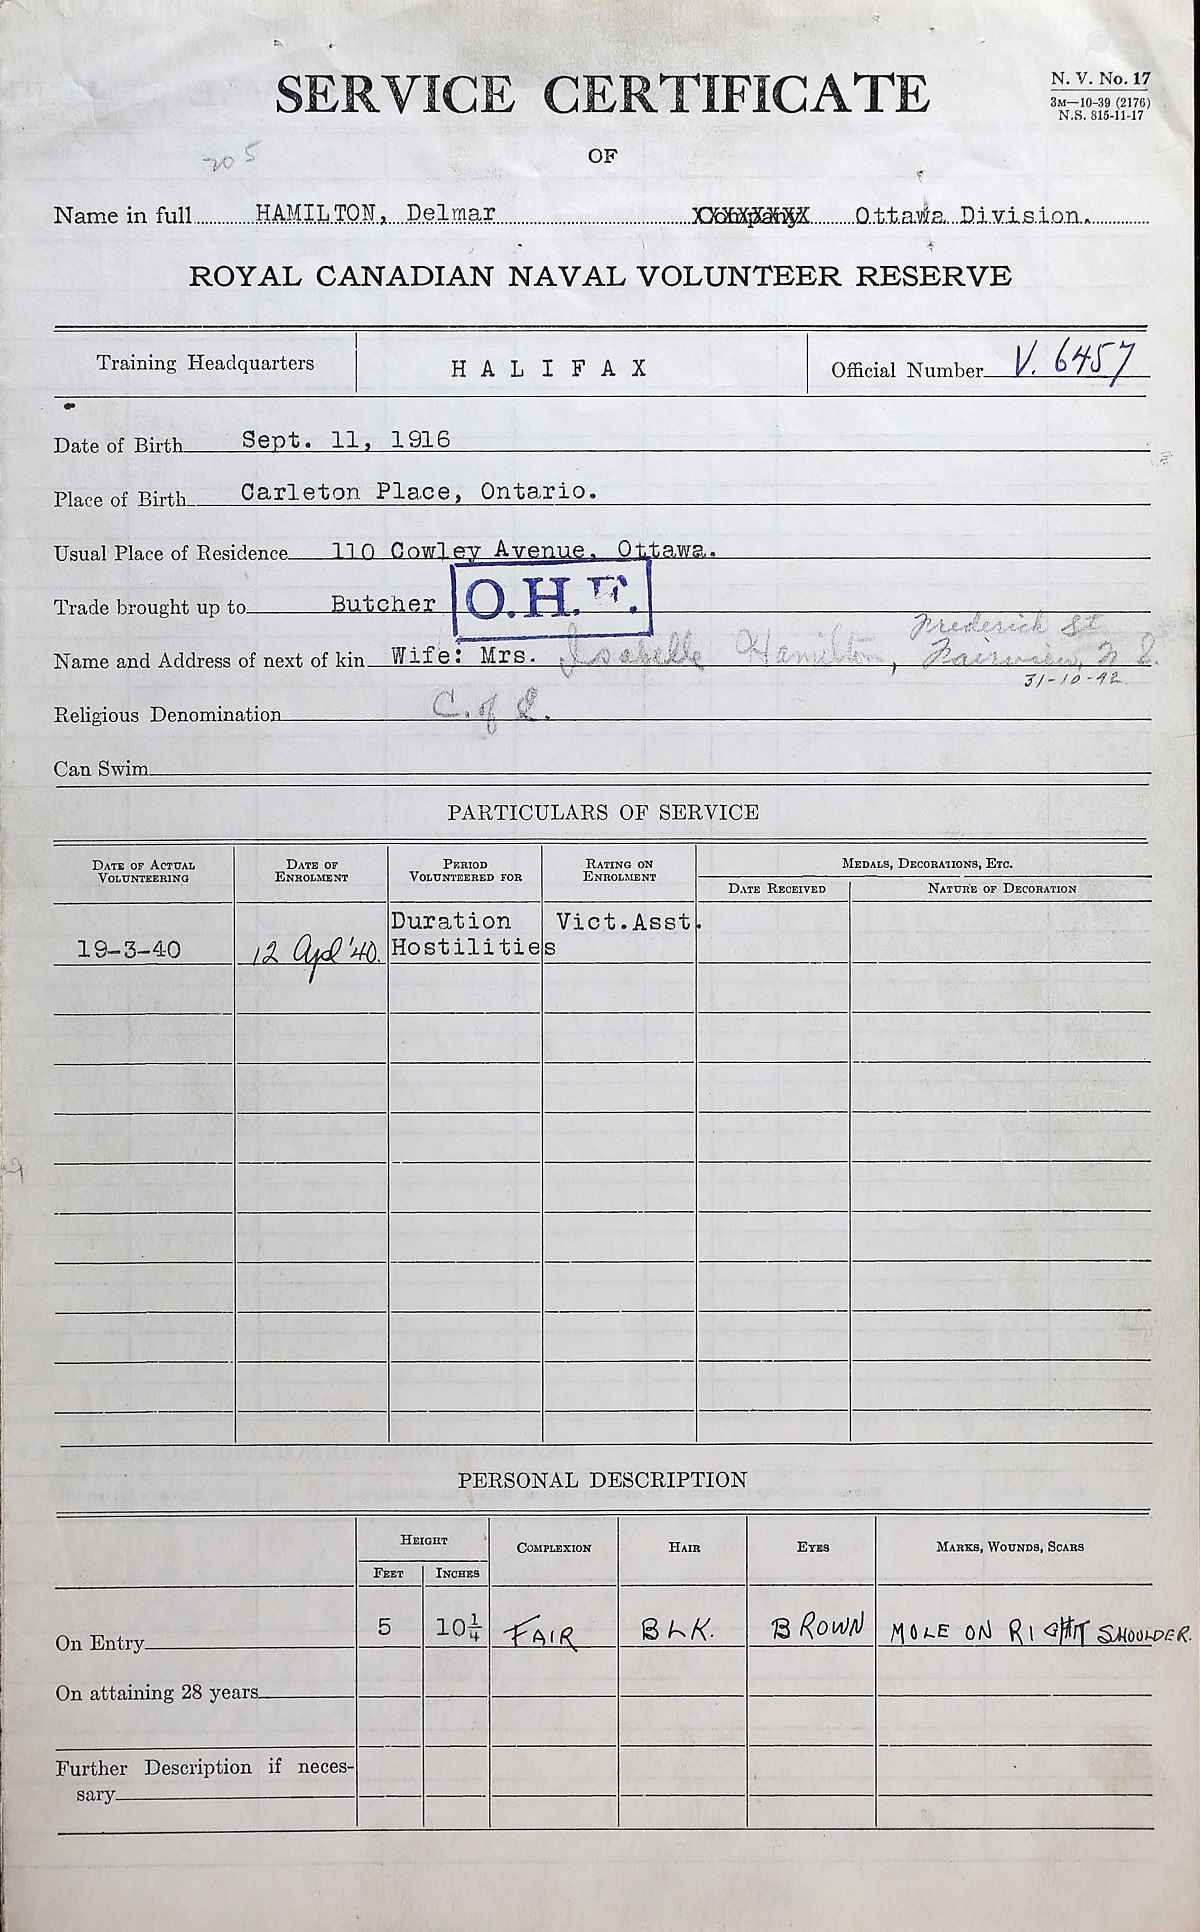 SERVICE CERTIFICATE
N. V. No. 17
3M—10-39 (2176)
N.S. 815-11-17
205
OF
Name in full HAMILTON, Delmar Company XXXXXXXX Ottawa Division.
ROYAL CANADIAN NAVAL VOLUNTEER RESERVE
Training Headquarters HALIFAX Official Number V. 6457
Date of Birth Sept. 11, 1916
Place of Birth Carleton Place, Ontario.
Usual Place of Residence 110 Cowley Avenue, Ottawa.
Trade brought up to Butcher O.H.F.
Frederick St
Name and Address of next of kin Wife: Mrs. Isabelle Hamilton, Fairview, N S.
31-10-42
Religious Denomination C. of E.
Can Swim
PARTICULARS OF SERVICE
DATE OF ACTUAL VOLUNTEERING DATE OF ENROLMENT PERIOD VOLUNTEERED FOR RATING ON ENROLMENT MEDALS, DECORATIONS, ETC.
DATE RECEIVED NATURE OF DECORATION
Duration Vict.Asst.
19-3-40 12 Apl '40. Hostilities
PERSONAL DESCRIPTION
HEIGHT COMPLEXION HAIR EYES MARKS, WOUNDS, SCARS
FEET INCHES
On Entry 5 10¼ FAIR BLK. BROWN MOLE ON RIGHT SHOULDER.
On attaining 28 years
Further Description if neces-
sary